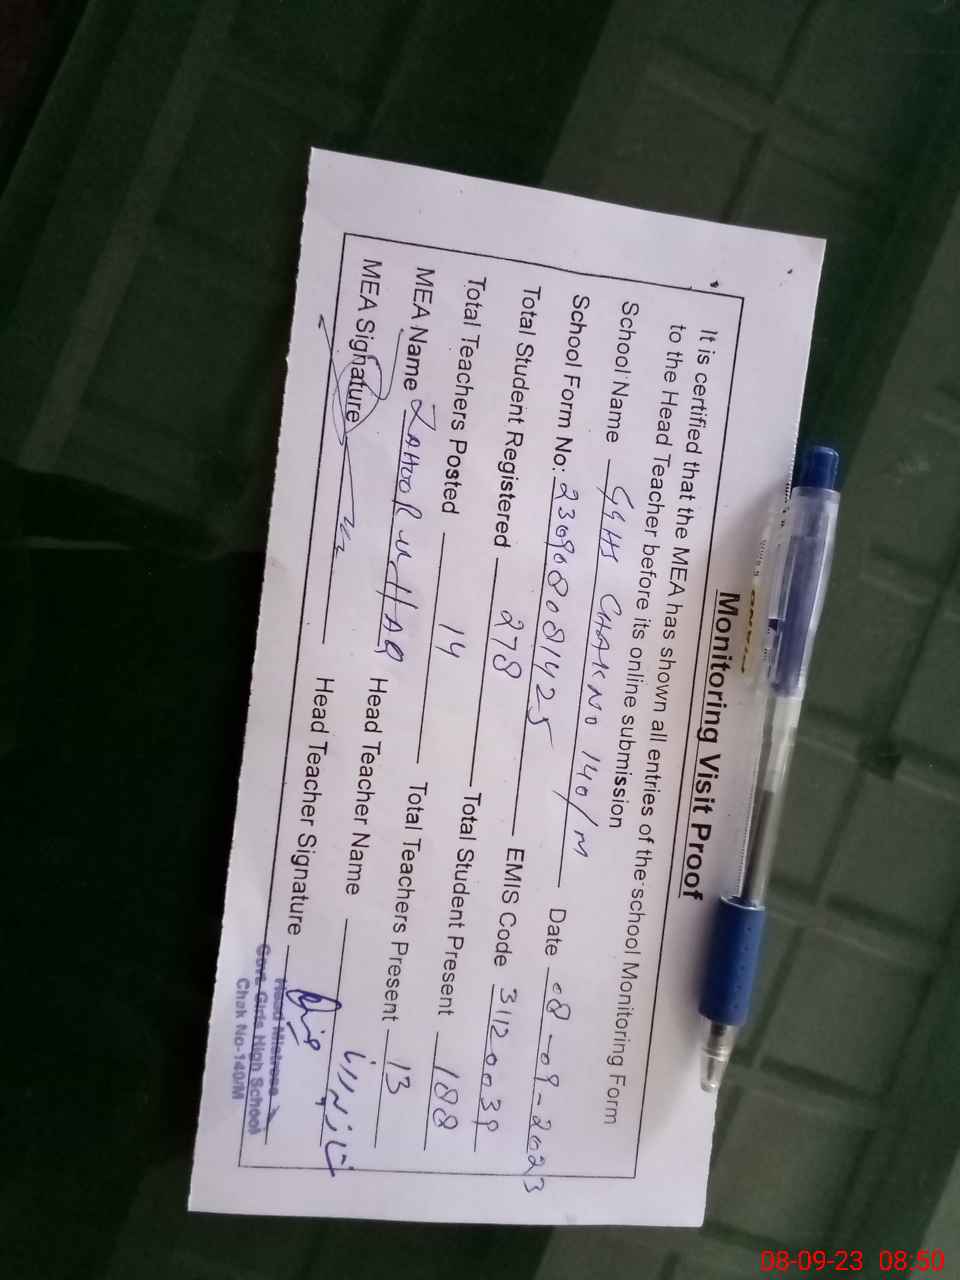 Monitoring Visit Proof
It is certified that the MEA has shown all entries of the school Monitoring Form
to the Head Teacher before its online submission
School Name GGHS CHAK NO 140/M Date 08-09-2023
School Form No: 230908081425 EMIS Code 31120039
Total Student Registered 278 Total Student Present 188
Total Teachers Posted 14 Total Teachers Present 13
MEA Name ZAHOOR UL HAQ Head Teacher Name
MEA Signature Head Teacher Signature
Head Mistress
Govt. Girls High School
Chak No-140/M
08-09-23 08:50